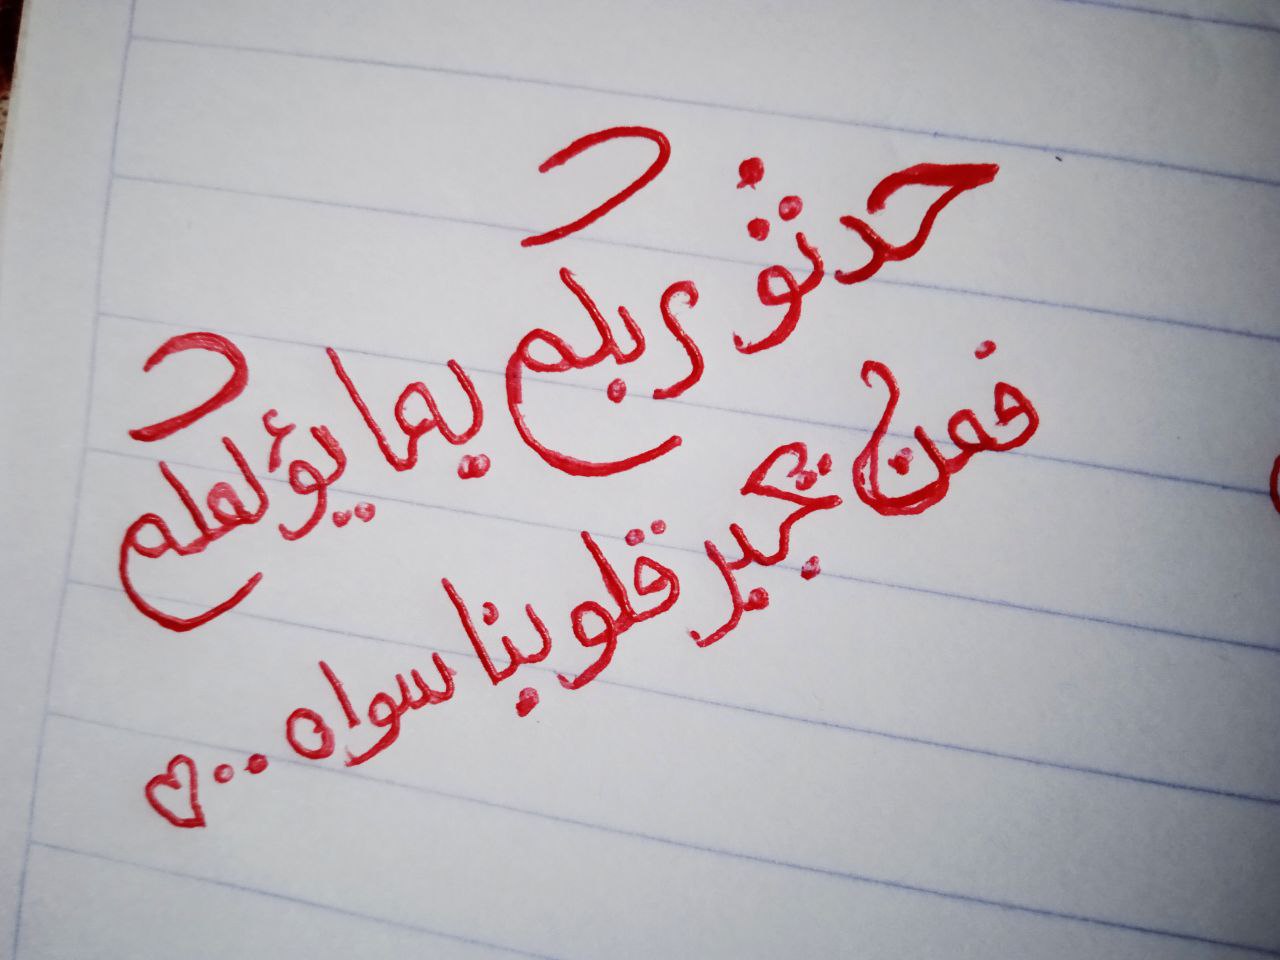 حدثو ربكم بما يؤلمكم
فمن يجبر قلوبنا سواه ..♡